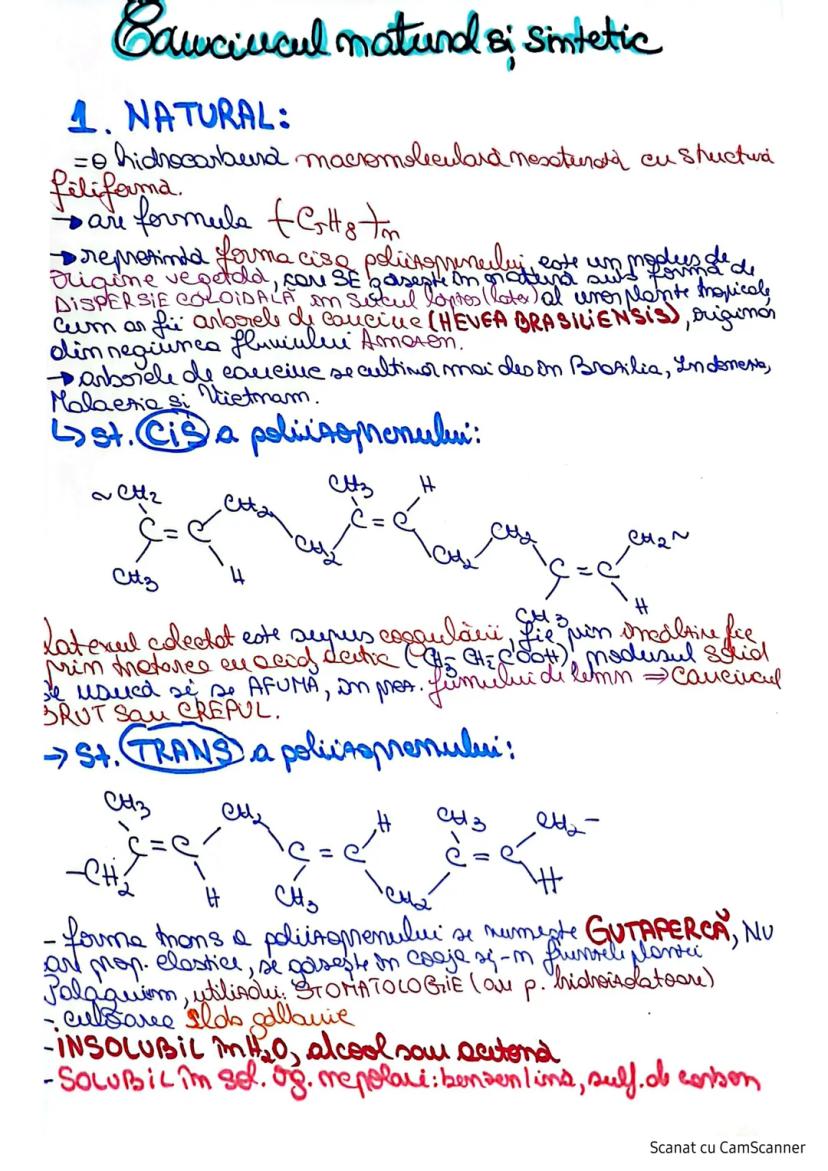 Cauciucul natural și sintetic
1. NATURAL:
=o hidrocarbură macromoleculară nesaturată cu structură
filiformă.
→ are formula (C5H8)n
→ reprezintă forma cis a poliizoprenului, este un produs de
origine vegetală, care SE găsește în natură sub formă de
DISPERSIE COLOIDALĂ în sucul lăptos (latex) al unor plante tropicale,
cum ar fii arborele de cauciuc (HEVEA BRASILIENSIS), originar
din regiunea fluviului Amazon.
→ arborele de cauciuc se cultivă mai des în Brazilia, Indonezia,
Malaezia si Vietnam.
↳ st. CIS a poliizoprenului:
CH3 H
~CH2 CH2 C=C CH2 CH2~
C=C CH2 CH2 C=C
CH3 H CH3 H
latexul colectat este supus coagulării, fie prin încălzire fie
prin tratarea cu acid acetic (CH3 CH2 COOH), produsul solid
se usucă si se AFUMĂ, în prez. fumului de lemn ⇒ cauciucul
BRUT sau CREPUL.
→ St. TRANS a poliizoprenului:
CH3 CH2 H CH3 CH2-
C=C C=C C=C
-CH2 H CH3 CH2 H
- forma trans a poliizoprenului se numește GUTAPERCĂ, NU
are prop. elastice, se găsește în coaja și-n frunzele plantei
Palaquium, utilizări: STOMATOLOGIE (are p. hidroizolatoare)
- culoarea albă gălbuie
-INSOLUBIL în H2O, alcool sau acetonă
-SOLUBIL în sol. og. nepolari: benzen/ină, sulf. de carbon
Scanat cu CamScanner